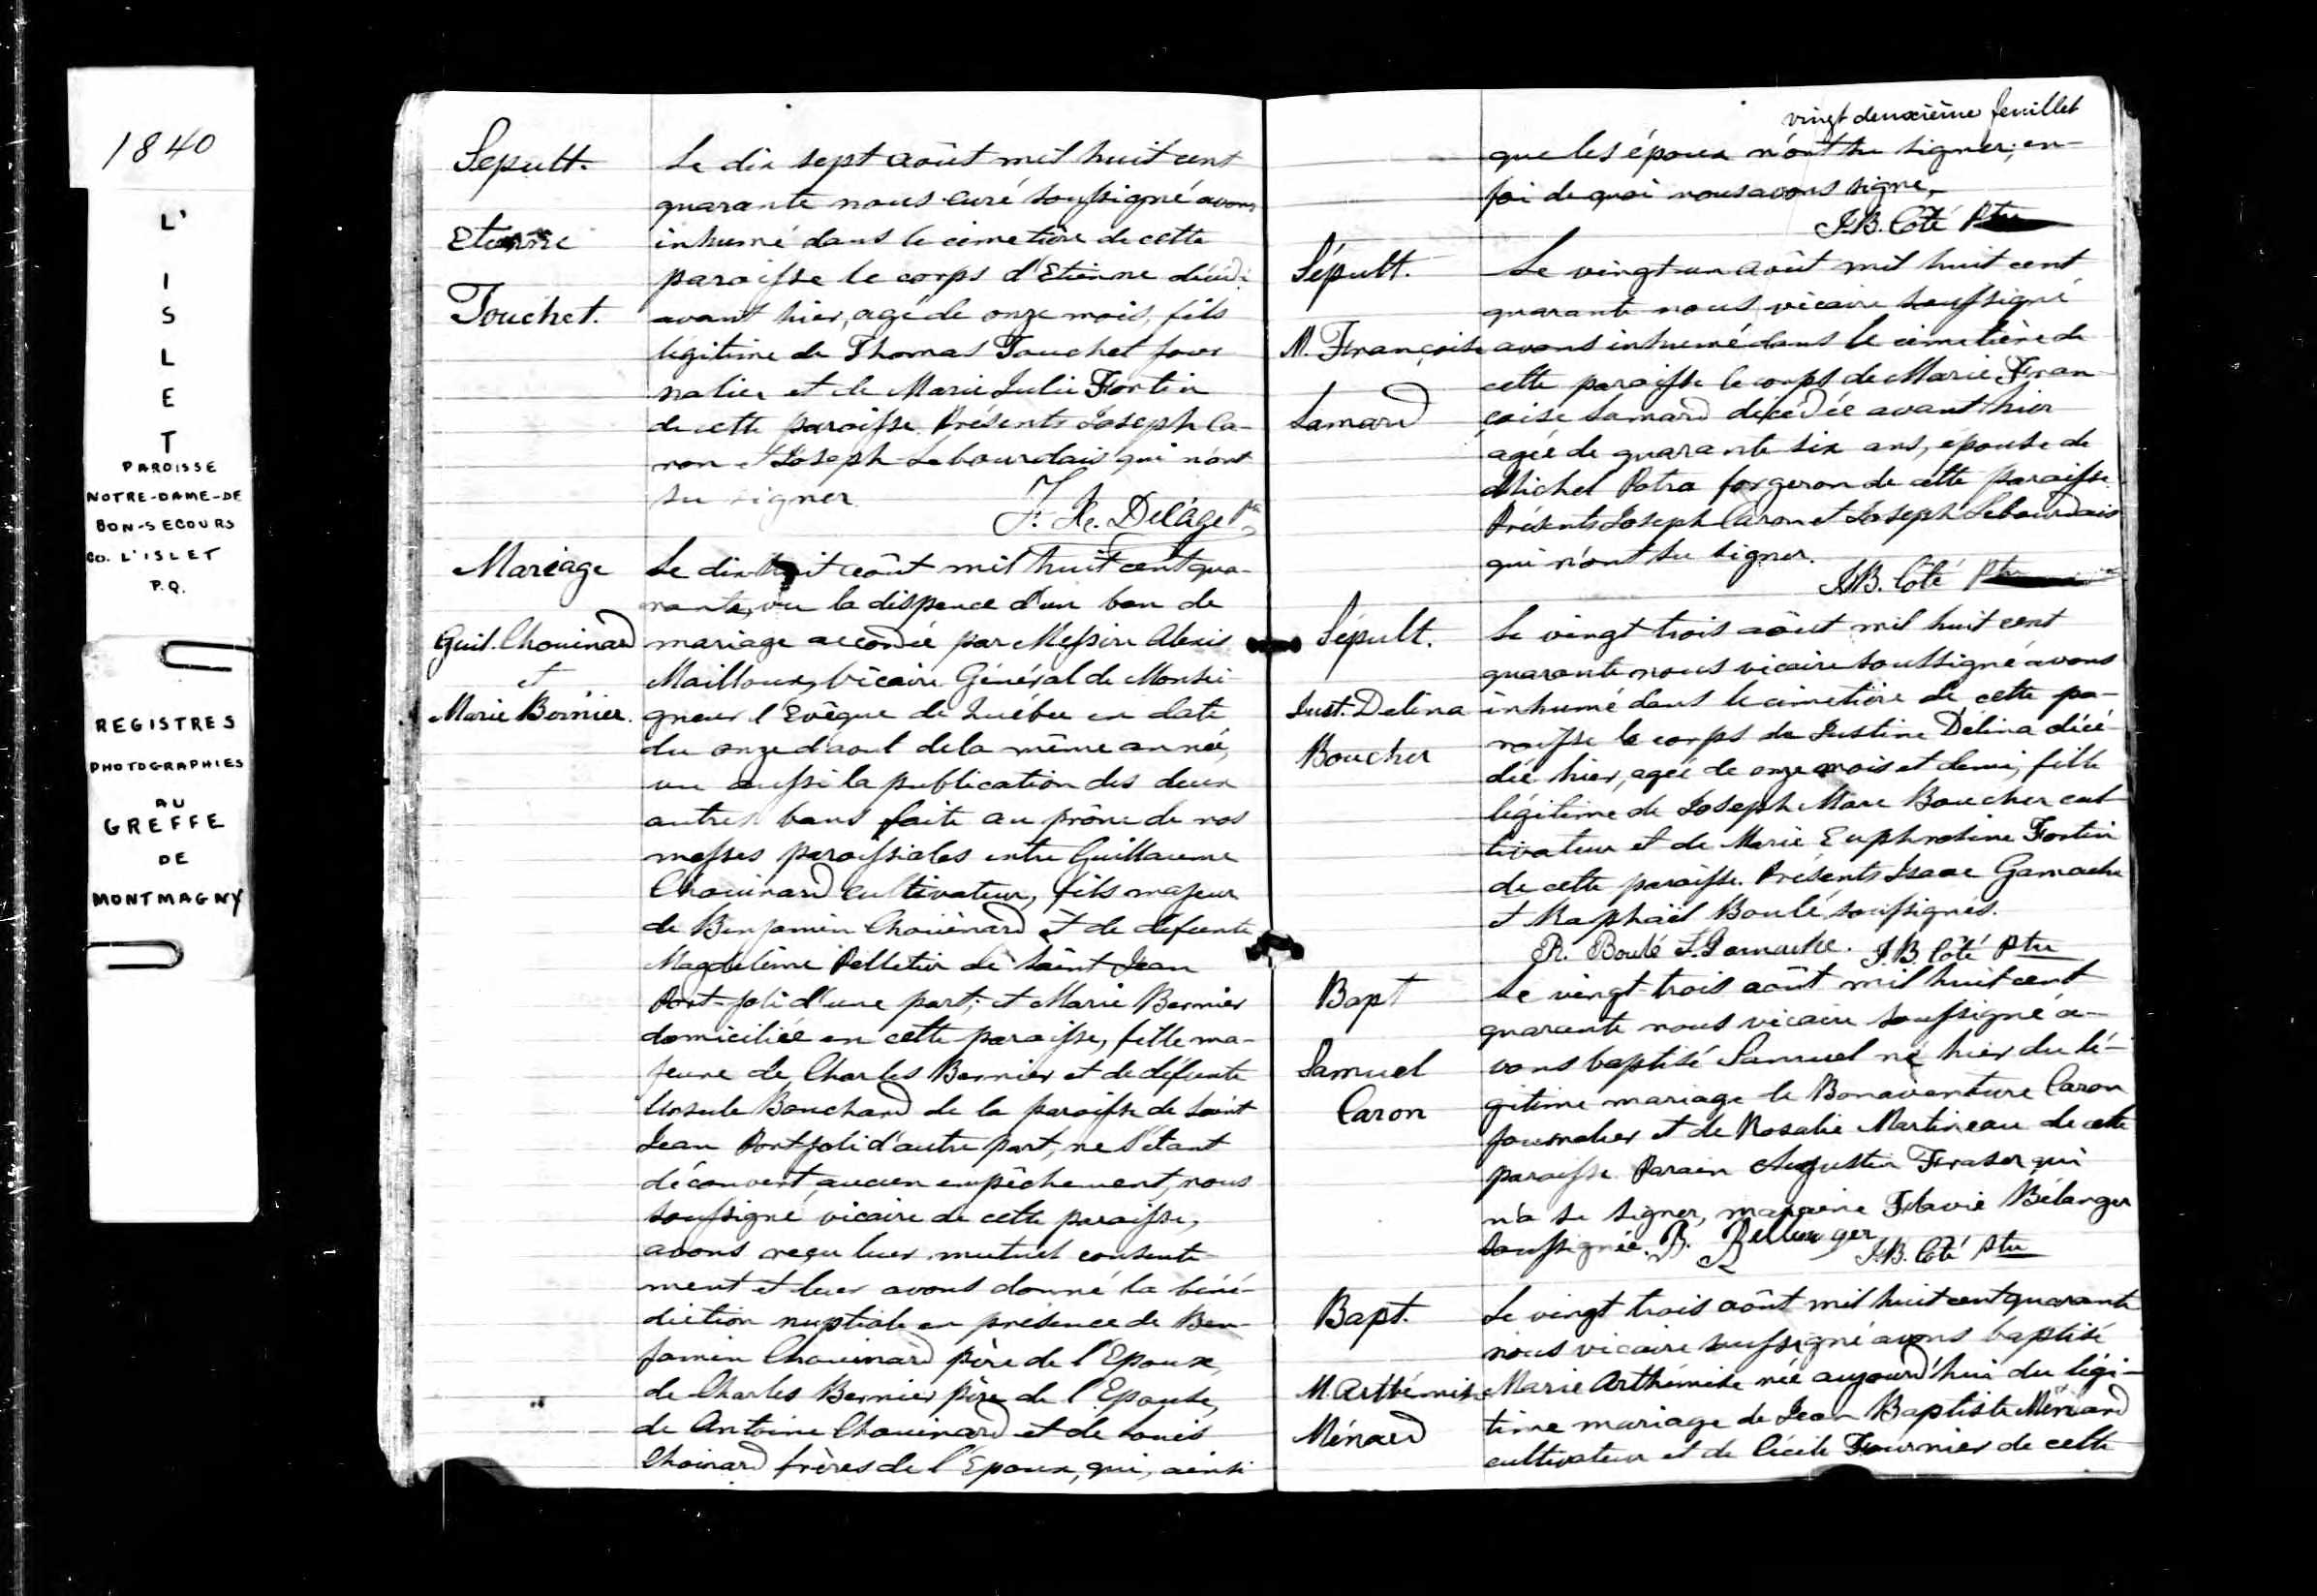 1840
L'
I
S
L
E
T
PAROISSE
NOTRE-DAME-DE
BON-SECOURS
CO. L'ISLET
P.Q.
REGISTRES
PHOTOGRAPHIES
AU
GREFFE
DE
MONTMAGNY
Sepult.
Etienne
Touchet.
Le dix sept août mil huit cent
quarante nous curé soussigné avons
inhumé dans le cimetière de cette
paroisse le corps d'Etienne décédé
avant hier, agé de onze mois, fils
légitime de Thomas Touchet jour
nalier et de Marie Julie Fortin
de cette paroisse. Présents Joseph Ca-
ron et Joseph Lebourdais qui n'ont
su signer.
F. X. Delâge Ptre
Mariage
Guil. Chouinard
et
Marie Bernier.
Le dix huit août mil huit cent qua-
rante, vu la dispence d'un ban de
mariage accordée par Messire Alexis
Mailloux, Vicaire Général de Monsei-
gneur l'Evêque de Québec en date
du onze d'aout de la même année,
vu aussi la publication des deux
autres bans faite au prône de nos
messes paroissiales entre Guillaume
Chouinard cultivateur, fils majeur
de Benjamin Chouinard et de défunte
Magdeleine Pelletier de Saint Jean
Port-joli d'une part; et Marie Bernier
domiciliée en cette paroisse, fille ma-
jeure de Charles Bernier et de défunte
Ursule Bouchard de la paroisse de Saint
Jean Port joli d'autre part, ne s'étant
découvert aucun empêchement, nous
soussigné vicaire de cette paroisse,
avons reçu leur mutuel consente-
ment et leur avons donné la béné-
diction nuptiale en présence de Ben-
jamin Chouinard père de l'Epoux,
de Charles Bernier père de l'Epouse,
de Antoine Chouinard et de Louis
Choinard frères de l'Epoux, qui, ainsi
vingt deuxième feuillet
que les époux n'ont su signer; en-
foi de quoi nous avons signé,
J.B. Côté Ptre
Sépult.
M. Françoise
Lamard
Le vingt un août mil huit cent
quarante nous vicaire soussigné
avons inhumé dans le cimetière de
cette paroisse le corps de Marie Fran
çoise Lamard décédée avant hier
agée de quarante six ans, épouse de
Michel Potra forgeron de cette paroisse.
Présents Joseph Caron et Joseph Lebourdais
qui n'ont su signer.
J.B. Côté Ptre
Sépult.
Just. Delina
Boucher
Le vingt trois août mil huit cent
quarante nous vicaire soussigné avons
inhumé dans le cimetière de cette pa-
roisse le corps de Justine Délina décé-
dée hier, agée de onze mois et demi, fille
légitime de Joseph Marc Boucher cul-
tivateur et de Marie Euphrosine Fortin
de cette paroisse. Présents Isaac Gamache
et Raphaël Boulé soussignés.
R. Boulé I. Gamache. J.B. Côté Ptre
Bapt
Samuel
Caron
Le vingt trois août mil huit cent
quarante nous vicaire soussigné a-
vons baptisé Samuel né hier du lé-
gitime mariage de Bonaventure Caron
journalier et de Rosalie Martineau de cette
paroisse. Parain Augustin Fraser qui
n'a su signer, maraine Flavie Bélanger
soussignée. Bellenger
J.B. Côté Ptre
Bapt.
M. Arthémise
Ménard
Le vingt trois août mil huit cent quarante
nous vicaire soussigné avons baptisé
Marie Arthémise née aujourd'hui du légi-
time mariage de Jean Baptiste Ménard
cultivateur et de Cécile Fournier de cette